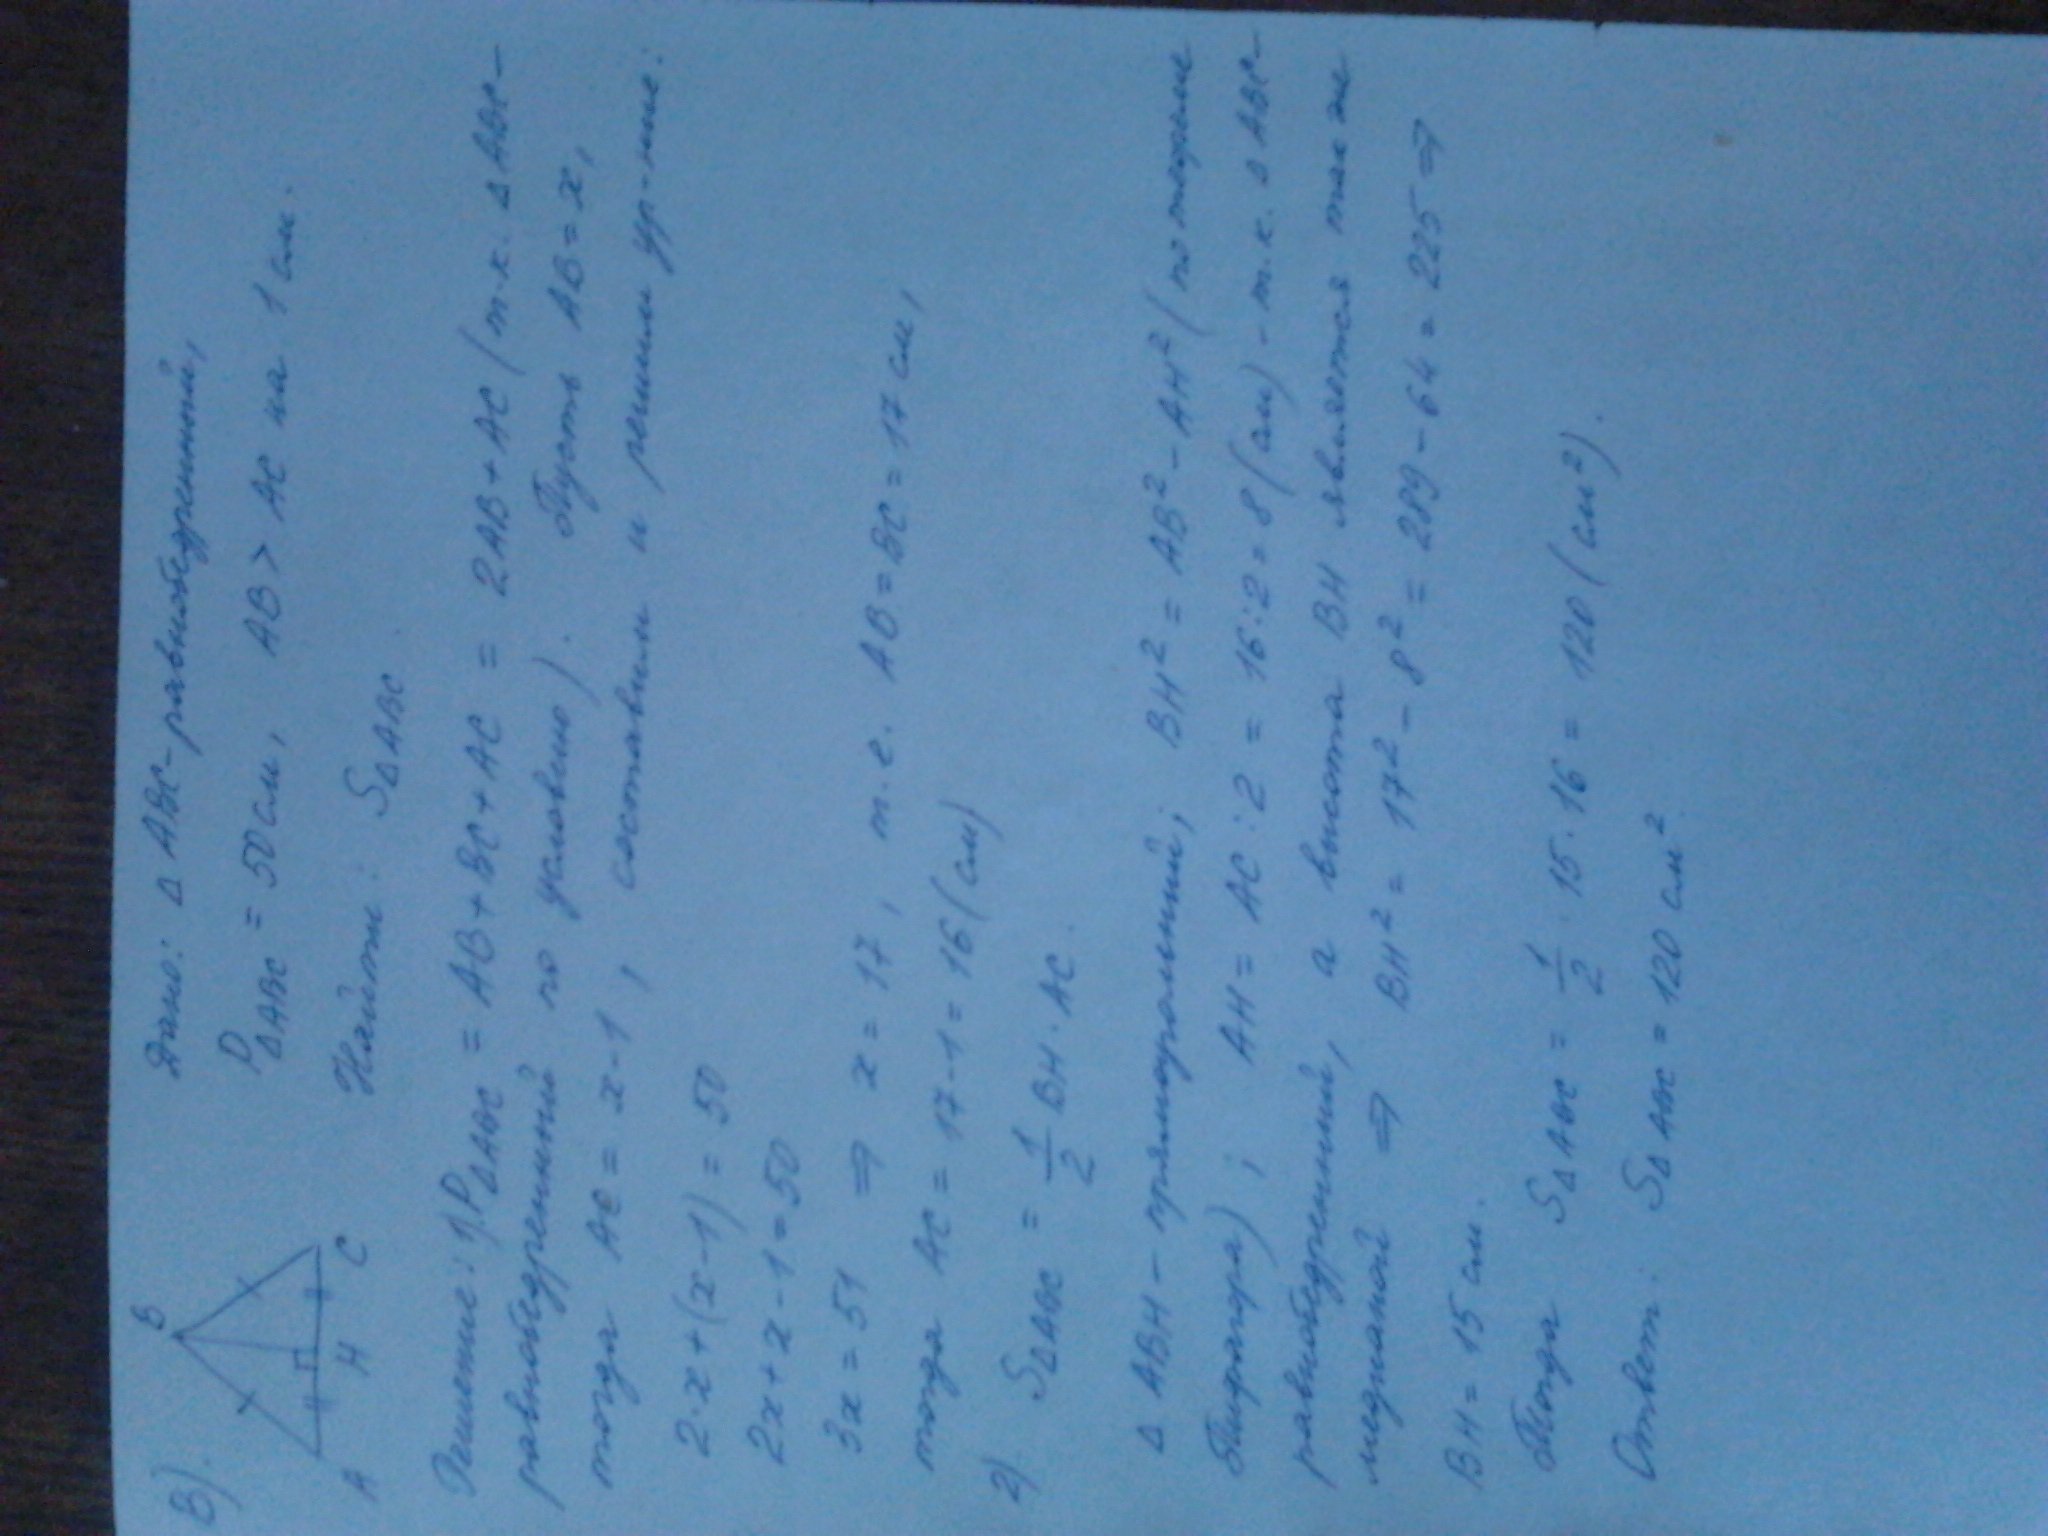 В).
B
A
H
C
Дано: Δ ABC - равнобедренный,
P Δ ABC = 50 см, AB > AC на 1 см.
Найти: S Δ ABC
Решение: 1) P Δ ABC = AB + BC + AC = 2AB + AC (т.к. Δ ABC -
равнобедренный по условию). Пусть AB = x,
тогда AC = x - 1, составим и решим ур-ние:
2·x + (x - 1) = 50
2x + x - 1 = 50
3x = 51 ⇒ x = 17, т.е. AB = BC = 17 см,
тогда AC = 17 - 1 = 16 (см)
2). S Δ ABC = 1/2 BH · AC.
Δ ABH - прямоугольный; BH² = AB² - AH² (по теореме
Пифагора); AH = AC : 2 = 16 : 2 = 8 (см) - т.к. Δ ABC -
равнобедренный, а высота BH является также
медианой ⇒ BH² = 17² - 8² = 289 - 64 = 225 ⇒
BH = 15 см.
Тогда S Δ ABC = 1/2 · 15 · 16 = 120 (см²).
Ответ: S Δ ABC = 120 см²